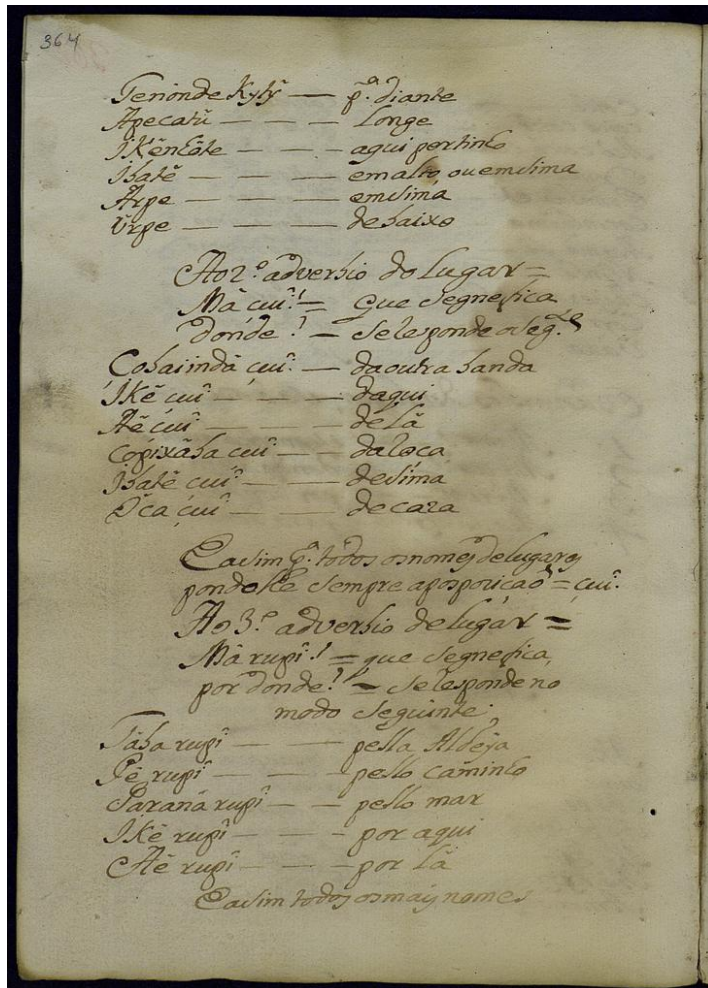 364
Tenonde Kytỹ — pª. diante
Apecatû — — — Longe
IKênhôte — — — aqui pertinho
Ibatê — — — em alto, ou em sima
Arpe — — — em sima
Ûrpe — — — debaixo
Ao 2º. adverbio do Lugar =
Mâ çuî? = que segnefica
donde? = se Responde o seg.te
Cobaindâ çuî. — da outra banda
IKê çuî — — — daqui
Aê çuî — — — de Lâ
Copixâba çuî — — da Roca
Ibatê çuî — — de sima
Oca çuî — — de caza
E asim pª. todos os nomes de lugares
pondolhe sempre a posposicaõ = çuî.
Ao 3º. adverbio de lugar =
Mâ rupî? = que segnefica,
por donde? = se Responde no
modo seguinte.
Tâba rupî — — pella Aldeya
Pê rupî — — — pello caminho
Paranâ rupî — — pello mar
IKê rupî — — — por aqui
Aê rupî — — — por Lâ
E asim todos os mais nomes